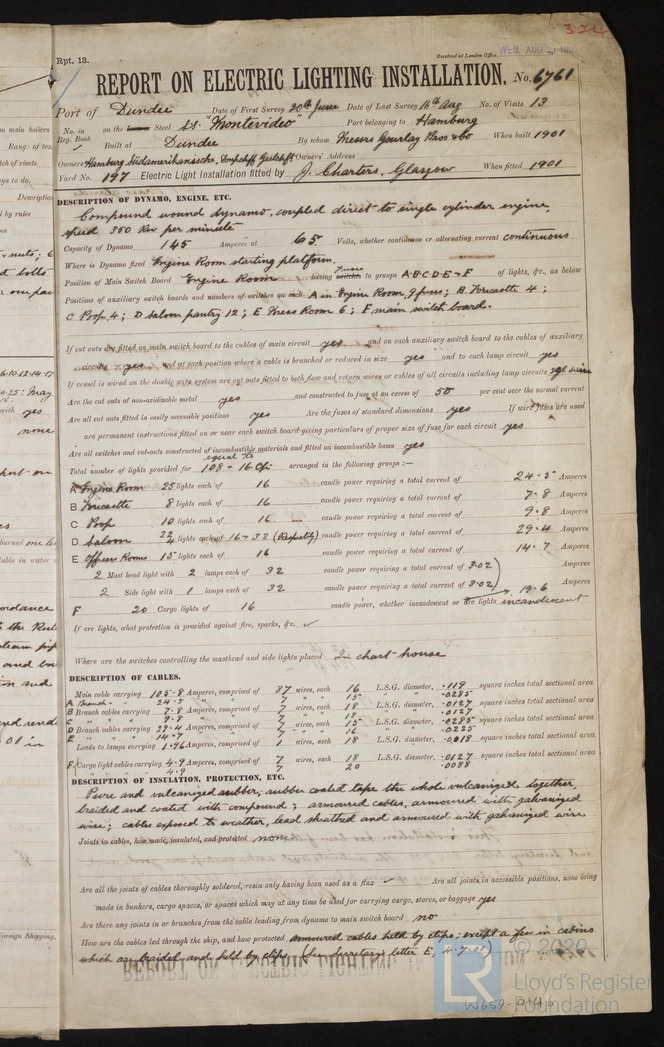 324
Rpt. 13.
Received at London Office
WED. AUG 21 1901
REPORT ON ELECTRIC LIGHTING INSTALLATION. No. 6761
Port of Dundee Date of First Survey 20th June Date of Last Survey 16th Aug No. of Visits 13
No. in Reg. Book on the Iron Steel S.S. "Montevideo" Port belonging to Hamburg
Built at Dundee By whom Messrs Gourlay Bros & Co When built 1901
Owners Hamburg Südamerikanische, Dampfschiff Gesellschaft Owners' Address
Yard No. 197 Electric Light Installation fitted by J. Charters, Glasgow When fitted 1901
DESCRIPTION OF DYNAMO, ENGINE, ETC.
Compound wound dynamo, coupled direct to single cylinder engine,
speed 350 Rev per minute
Capacity of Dynamo 145 Amperes at 65 Volts, whether continuous or alternating current continuous
Where is Dynamo fixed Engine Room starting platform.
Position of Main Switch Board Engine Room having fuses switches to groups A.B.C.D.E & F of lights, &c., as below
Positions of auxiliary switch boards and numbers of switches on each A in Engine Room, 9 fuses; B. Forecastle 4;
C Poop 4; D Saloon pantry 12; E Mess Room 6; F main switch board.
If cut outs are fitted on main switch board to the cables of main circuit yes and on each auxiliary switch board to the cables of auxiliary
circuits yes and at each position where a cable is branched or reduced in size yes and to each lamp circuit yes
If vessel is wired on the double wire system are cut outs fitted to both flow and return wires or cables of all circuits including lamp circuits sgl wire
Are the cut outs of non-oxidizable metal yes and constructed to fuse at an excess of 50 per cent over the normal current
Are all cut outs fitted in easily accessible positions yes Are the fuses of standard dimensions yes If wire fuses are used
are permanent instructions fitted on or near each switch board giving particulars of proper size of fuse for each circuit yes
Are all switches and cut-outs constructed of incombustible materials and fitted on incombustible bases yes
Total number of lights provided for equal to 108 = 16 Cp. arranged in the following groups :—
A Engine Room 25 lights each of 16 candle power requiring a total current of 24.5 Amperes
B Forecastle 8 lights each of 16 candle power requiring a total current of 7.8 Amperes
C Poop 10 lights each of 16 candle power requiring a total current of 9.8 Amperes
D Saloon 22 4 lights each of 16 & 32 (Respectly) candle power requiring a total current of 29.4 Amperes
E Officers Rooms 15 lights each of 16 candle power requiring a total current of 14.7 Amperes
2 Mast head light with 2 lamps each of 32 candle power requiring a total current of 3.02 Amperes
2 Side light with 1 lamps each of 32 candle power requiring a total current of 3.02 Amperes
F 20 Cargo lights of 16 candle power, whether incandescent or arc lights incandescent 19.6
If arc lights, what protection is provided against fire, sparks, &c.
Where are the switches controlling the masthead and side lights placed In chart-house
DESCRIPTION OF CABLES.
Main cable carrying 105.8 Amperes, comprised of 37 wires, each 16 L.S.G. diameter, .119 square inches total sectional area
A Branch " " 24.7 " " 7 " 15 " .0285
B Branch cables carrying 7.8 Amperes, comprised of 7 wires, each 18 L.S.G. diameter, .0127 square inches total sectional area
C " " " 9.8 " " 7 " 18 " .0127
D Branch cables carrying 29.4 Amperes, comprised of 7 wires, each 15 L.S.G. diameter, .0285 square inches total sectional area
E " " " 14.7 " " 7 " 16 " .0225
Leads to lamps carrying 1.96 Amperes, comprised of 1 wires, each 18 L.S.G. diameter, .0018 square inches total sectional area
F Cargo light cables carrying 4.9 Amperes, comprised of 7 wires, each 18 L.S.G. diameter, .0127 square inches total sectional area
" " " 4.9 7 20 .0088
DESCRIPTION OF INSULATION, PROTECTION, ETC.
Pure and vulcanized rubber, rubber coated tape the whole vulcanized together,
braided and coated with compound; armoured cables, armoured with galvanized
wire; cables exposed to weather, lead sheathed and armoured with galvanized wire
Joints in cables, how made, insulated, and protected none
Are all the joints of cables thoroughly soldered, resin only having been used as a flux Are all joints in accessible positions, none being
made in bunkers, cargo spaces, or spaces which may at any time be used for carrying cargo, stores, or baggage yes
Are there any joints in or branches from the cable leading from dynamo to main switch board no
How are the cables led through the ship, and how protected armoured cables held by clips; except a few in cabins
which are braided and held by clips (See Secretary's letter E, 2-7-01)
© 2020
LR
Lloyd's Register
Foundation
W659-0140